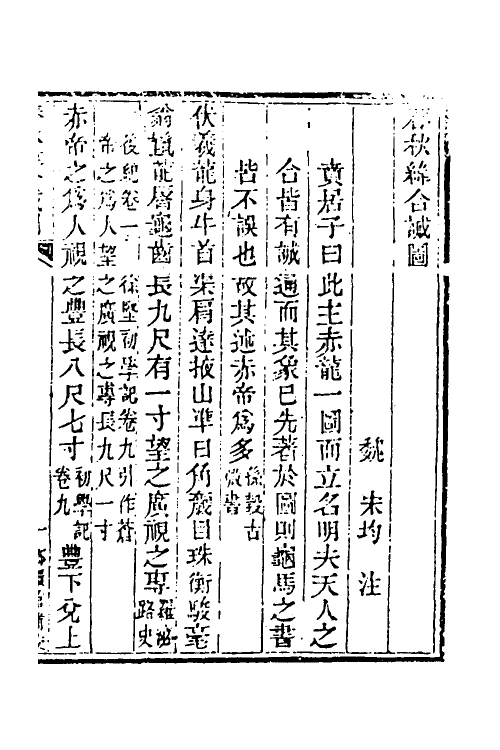 春秋緯合誠圖
魏 宋均 注
賁居子曰此主赤龍一圖而立名明夫天人之
合皆有誠適而其象已先著於圖則龜馬之書
皆不誤也故其述赤帝爲多孫㲄古微書
伏羲龍身牛首渠肩達掖山準日角奯目珠衡駿毫
翁鬣龍脣龜齒長九尺有一寸望之廣視之專羅泌路史
後紀卷一 徐堅初學記卷九引作蒼
帝之爲人望之廣視之專長九尺一寸
赤帝之爲人視之豐長八尺七寸初學記卷九 豐下兌上